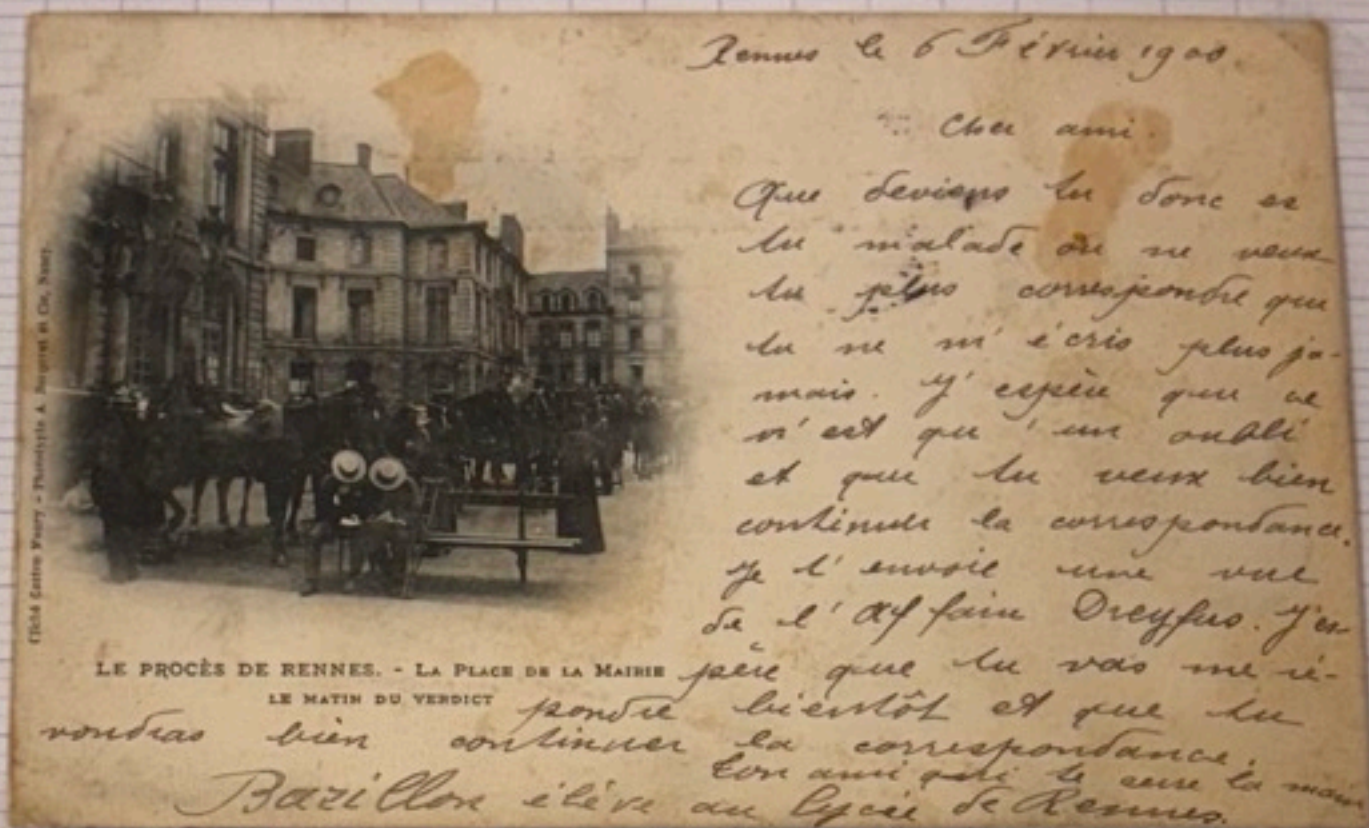 Rennes le 6 Février 1900.
Cher ami.
Que deviens tu donc es
tu malade ou ne veux
tu plus correspondre que
tu ne m'écris plus ja-
mais. J'espère que ce
n'est qu'un oubli
et que tu veux bien
continuer la correspondance.
Je t'envoie une vue
de l'Affaire Dreyfus. J'es-
père que tu vas me ré-
pondre bientôt et que tu
voudras bien continuer la correspondance.
Ton ami qui te serre la main
Bazillon élève au Lycée de Rennes.
LE PROCÈS DE RENNES. - LA PLACE DE LA MAIRIE
LE MATIN DU VERDICT
Cliché - Phototypie A. Bergeret et Cie, Nancy